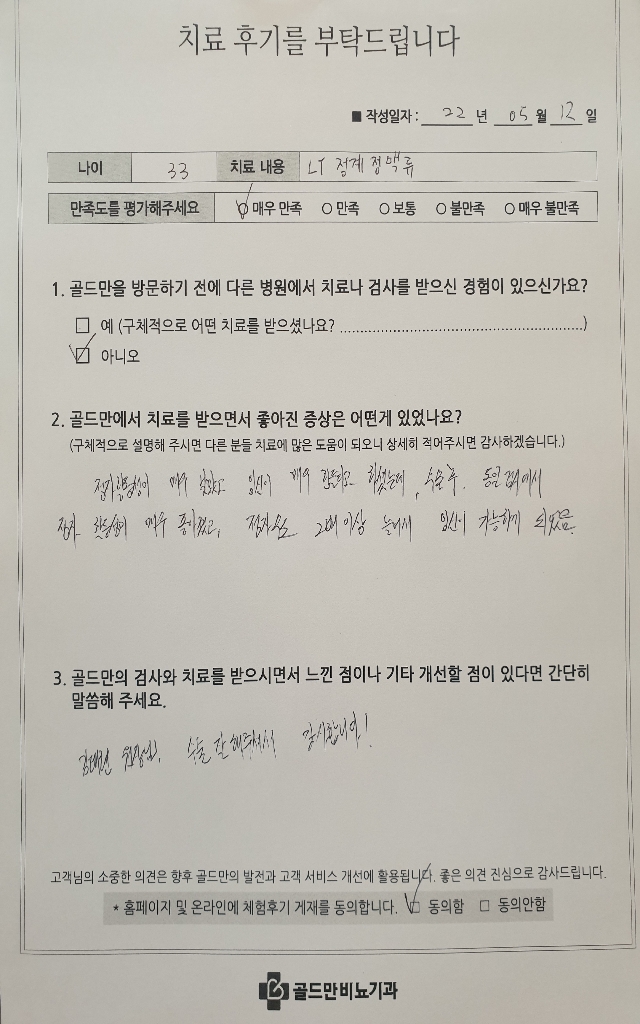 치료 후기를 부탁드립니다
■ 작성일자 : 22 년 05 월 12 일
나이 33 치료 내용 LT 정계정맥류
만족도를 평가해주세요 매우 만족 만족 보통 불만족 매우 불만족
1. 골드만을 방문하기 전에 다른 병원에서 치료나 검사를 받으신 경험이 있으신가요?
예 (구체적으로 어떤 치료를 받으셨나요? ........................................................)
아니오
2. 골드만에서 치료를 받으면서 좋아진 증상은 어떤게 있었나요?
(구체적으로 설명해 주시면 다른 분들 치료에 많은 도움이 되오니 상세히 적어주시면 감사하겠습니다.)
정자활동성이 매우 임신이 매우 힘들다고 하셨는데, 수술 후. 검사에서
정자 활동성이 매우 좋아졌고, 정자수도 2배 이상 늘어나서 임신이 가능하게 되었음.
3. 골드만의 검사와 치료를 받으시면서 느낀 점이나 기타 개선할 점이 있다면 간단히
말씀해 주세요.
원장님, 수술 잘 해주셔서 감사합니다!
고객님의 소중한 의견은 향후 골드만의 발전과 고객 서비스 개선에 활용됩니다. 좋은 의견 진심으로 감사드립니다.
* 홈페이지 및 온라인에 체험후기 게재를 동의합니다. 동의함 동의안함
골드만비뇨기과